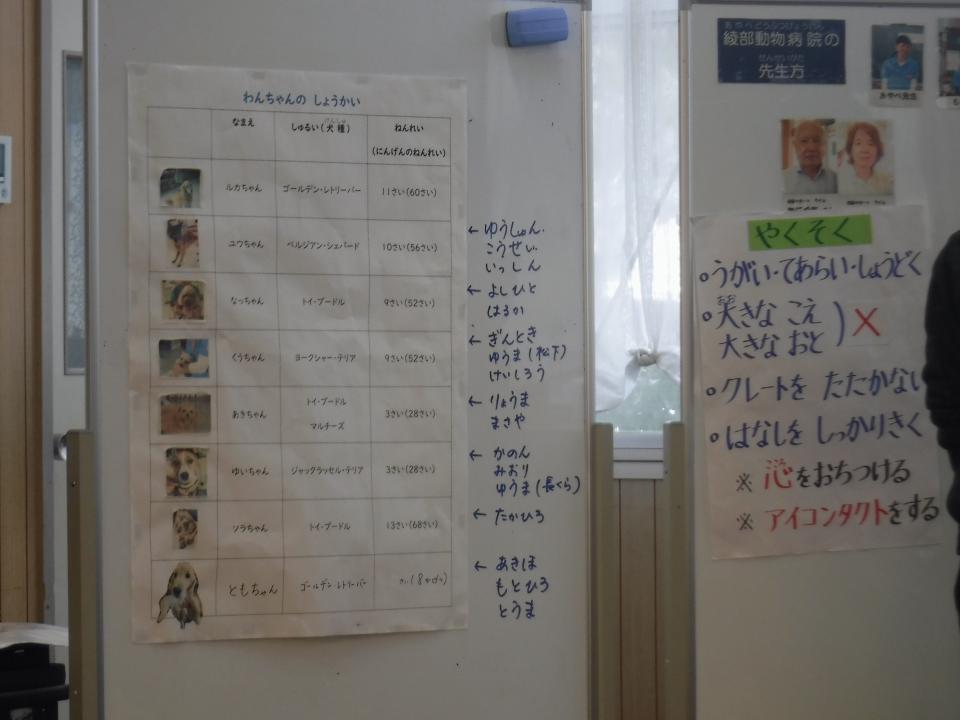 わんちゃんの しょうかい
なまえ しゅるい(犬種) ねんれい
(にんげんのねんれい)
ルカちゃん ゴールデン・レトリーバー 11さい(60さい)
ユウちゃん ベルジアン・シェパード 10さい(56さい)
なっちゃん トイ・プードル 9さい(52さい)
くうちゃん ヨークシャー・テリア 9さい(52さい)
あきちゃん トイ・プードル
マルチーズ 3さい(28さい)
ゆいちゃん ジャックラッセル・テリア 3さい(28さい)
ソラちゃん トイ・プードル 13さい(68さい)
ともちゃん ゴールデン・レトリーバー
← ゆうしゅん
こうせい
いっしん
← よしひと
はるか
← ぎんとき
ゆうま(松下)
けいしろう
← りょうま
まさや
← かのん
みおり
ゆうま(長くら)
← たかひろ
← あきほ
もとひろ
とうま
あやべどうぶつびょういん
綾部動物病院の
せんせいがた
先生方
あやべ先生
やくそく
○うがい・てあらい・しょうどく
○大きな こえ
大きな おと ) ×
○クレートを たたかない
○はなしを しっかりきく
※ 心をおちつける
※ アイコンタクトをする